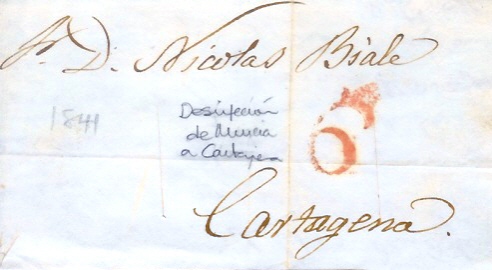 Sr. D. Nicolas Biale
1841
Desinfección
de Murcia
a Cartagena
6
Cartagena.